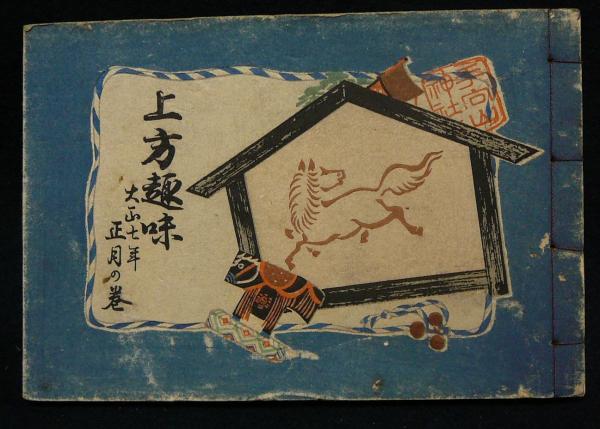 上方趣味
大正七年
正月の巻
神社